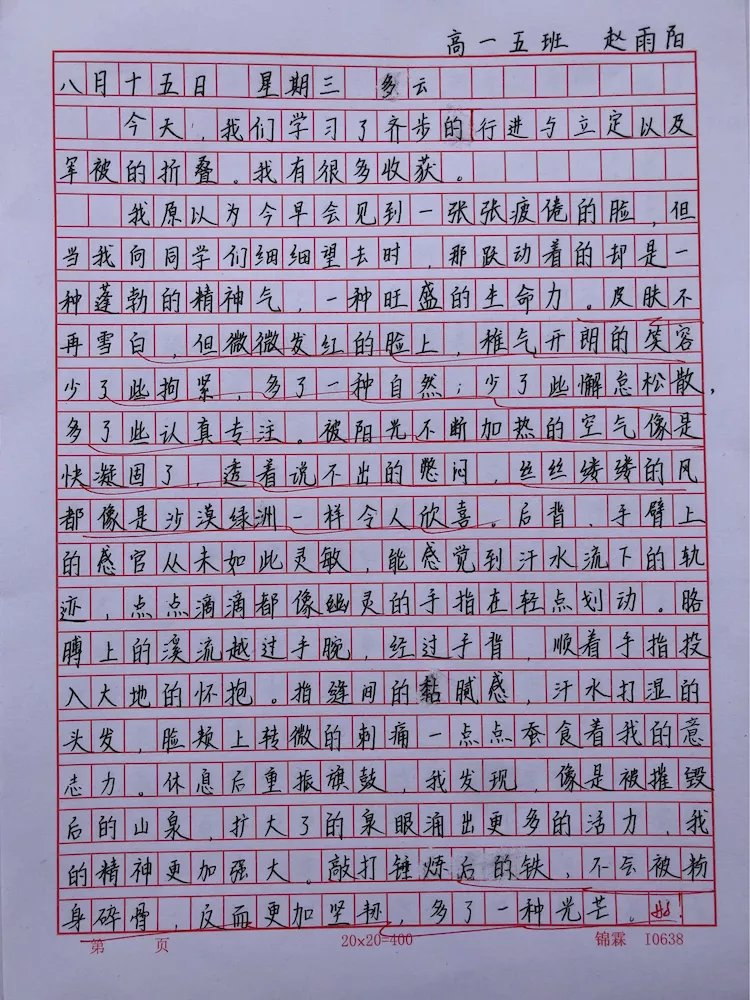 高一五班 赵雨阳
八月十五日 星期三 多云
今天,我们学习了齐步的行进与立定以及
军被的折叠。我有很多收获。
我原以为今早会见到一张张疲倦的脸,但
当我向同学们细细望去时,那跃动着的却是一
种蓬勃的精神气,一种旺盛的生命力。皮肤不
再雪白,但微微发红的脸上,稚气开朗的笑容
少了些拘紧,多了一种自然;少了些懈怠松散,
多了些认真专注。被阳光不断加热的空气像是
快凝固了,透着说不出的憋闷,丝丝缕缕的风
都像是沙漠绿洲一样令人欣喜。后背、手臂上
的感官从未如此灵敏,能感觉到汗水流下的轨
迹,点点滴滴都像幽灵的手指在轻点划动。胳
膊上的溪流越过手腕,经过手背,顺着手指投
入大地的怀抱。指缝间的黏腻感,汗水打湿的
头发,脸颊上转微的刺痛一点点蚕食着我的意
志力。休息后重振旗鼓,我发现,像是被摧毁
后的山泉,扩大了的泉眼涌出更多的活力,我
的精神更加强大。敲打锤炼后的铁,不会被粉
身碎骨,反而更加坚韧,多了一种光芒。好!
第 页 20x20=400 锦霖 I0638